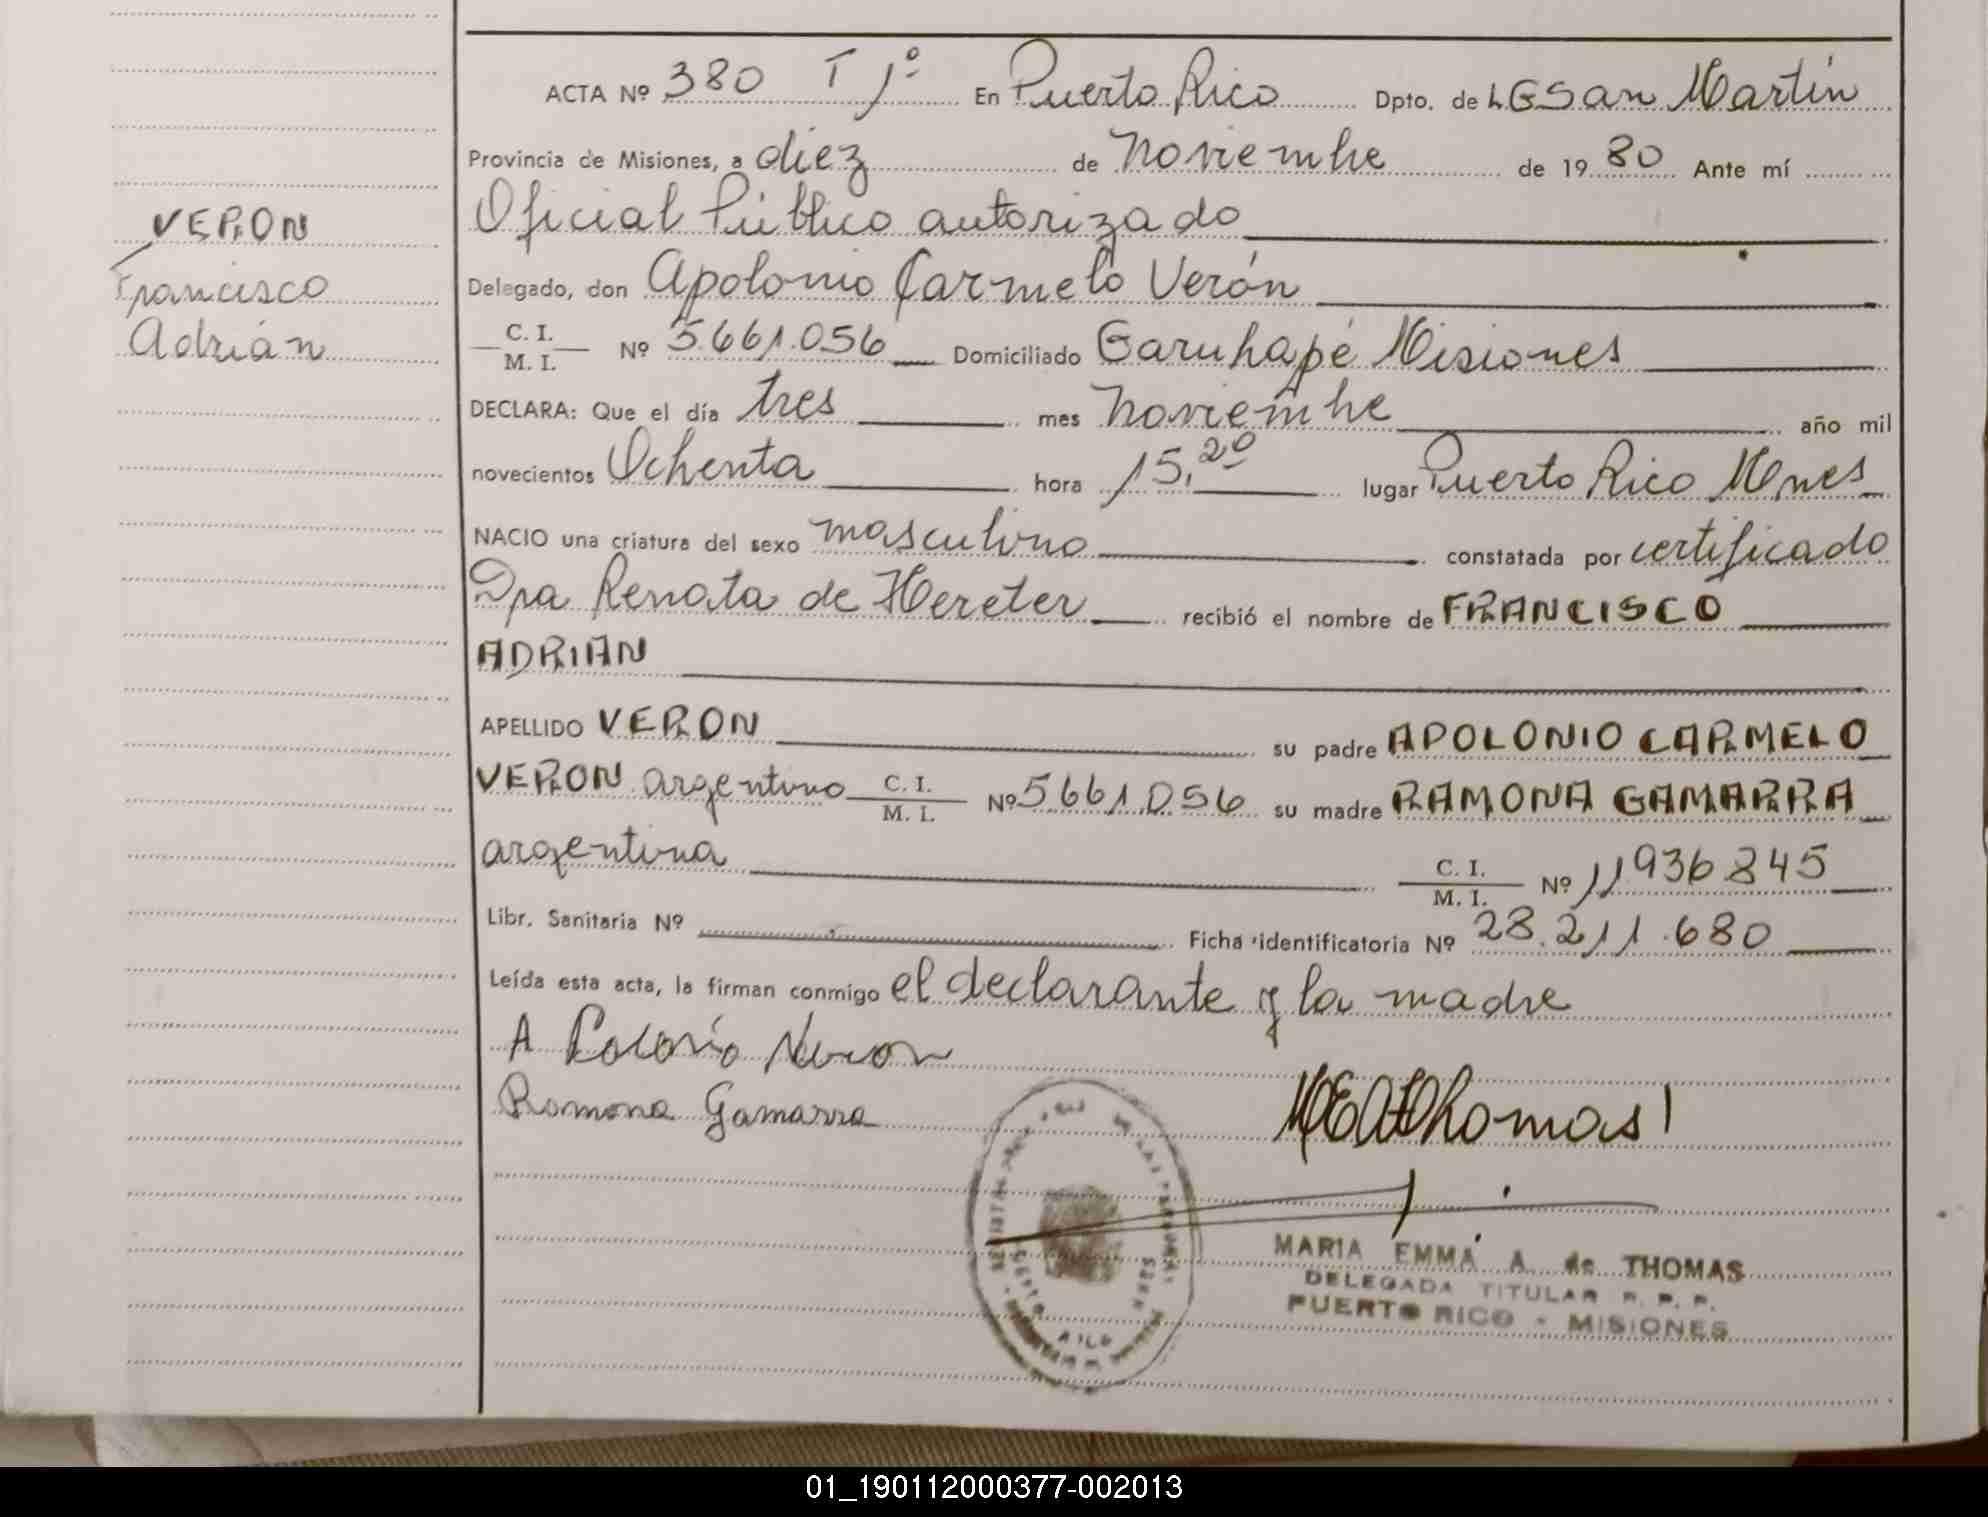 ACTA Nº 380 T 1º En Puerto Rico Dpto. de LGSan Martín
Provincia de Misiones, a diez de noviembre de 1980 Ante mí
Oficial Público autorizado
VERON
Francisco
Adrián
Delegado, don Apolonio Carmelo Verón
C. I.
M. I.
Nº 5.661.056 Domiciliado Garuhapé Misiones
DECLARA: Que el día tres mes noviembre año mil
novecientos Ochenta hora 15,20 lugar Puerto Rico Mnes
NACIO una criatura del sexo masculino constatada por certificado
Dra Renata de Hereter recibió el nombre de FRANCISCO
ADRIAN
APELLIDO VERON su padre APOLONIO CARMELO
VERON argentino C. I. M. I. Nº 5.661.056 su madre RAMONA GAMARRA
argentina C. I. M. I. Nº 11936845
Libr. Sanitaria Nº Ficha identificatoria Nº 28.211.680
Leída esta acta, la firman conmigo el declarante y la madre
A Polonio Veron
Ramona Gamarra
MEAThomas
MARIA EMMA A. de THOMAS
DELEGADA TITULAR R. P. P.
PUERTO RICO - MISIONES
01_190112000377-002013